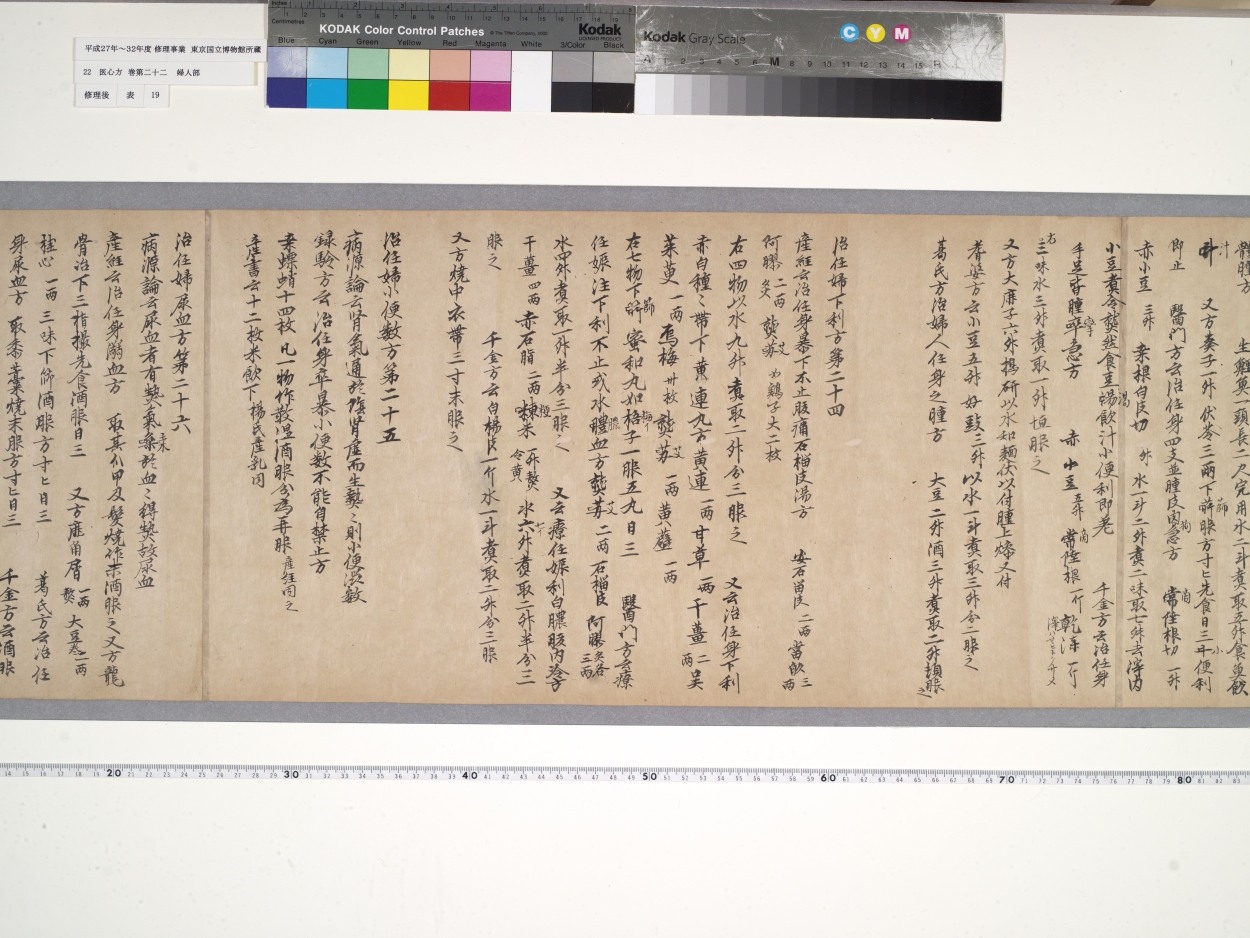 平成27年～32年度 修理事業 東京国立博物館所蔵
22 医心方 巻第二十二 婦人部
修理後 表 19
KODAK Color Control Patches
Kodak
LICENSED PRODUCT
Inches
Centimetres
Blue Cyan Green Yellow Red Magenta White 3/Color Black
Kodak Gray Scale
C Y M
A 1 2 3 4 5 6 M 8 9 10 11 12 13 14 15 B
生鯉魚一頭長二尺完用水二斗煮取五升食魚飲
汁 又方葵子一升伏苓三兩下篩服方寸匕先食日三小便利
即止 醫門方云治任身四支並腫皮肉急方 常陸根切一升
赤小豆三升 桒根白皮切一升 水一斗二升煮二味取七升去滓内
小豆煮令熟然食豆渴飲汁小便利即老 千金方云治任身
手足皆腫攣急方 赤小豆五升 常陸根一斤 乾
右三味水三升煮取一升恒服之
又方大麻子六升搗研以水和麵伏以付腫上燥又付
耆婆方云小豆五升好豉三升以水一斗煮取三升分二服之
葛氏方治婦人任身之腫方 大豆二升酒三升煮取二升頓服之
治任婦下利方第二十四
産經云治任身暴下不止腹痛石榴皮湯方 安石留皮二兩 當歸三兩
阿膠二兩炙 熟艾如鷄子大二枚
右四物以水九升煮取二升分三服之 又云治任身下利
赤白種々帶下黄連丸方黄連一兩 甘草一兩 干薑二兩 吴
茱萸一兩 烏梅卅枚 熟艾一兩 黄蘗一兩
右七物下篩蜜和丸如梧子一服五丸日三 醫門方云療
任娠注下利不止或水膿血方熟艾二兩 石榴皮 阿膠炙各三兩
水四升煮取一升半分三服之 又云療任娠利白膿腹内冷方
干薑四兩 赤石脂二兩 粳米一升熬令黄 水六升煮取二升半分三
服之 千金方云白楊皮一斤水一斗煮取二升分三服
又方燒中衣帶三寸末服之
治任婦小便數方第二十五
病源論云腎氣通於陰腎虚而生熱々則小便澁數
録驗方云治任身卒暴小便數不能自禁止方
桒螵蛸十四枚 凡一物作散温酒服分為再服産經同之
産書云十二枚米飲下楊氏産乳同
治任婦尿血方第二十六
病源論云尿血者有熱氣乘於血々得熱故尿血
産經云治任身溺血方 取其爪甲及髮燒作末酒服之又方龍
骨治下三指撮先食酒服日三 又方鹿角屑一兩熬 大豆卷一兩
桂心一兩三味下篩酒服方寸匕日三 葛氏方云治任
身尿血方 取黍藁燒末服方寸匕日三 千金方云酒服